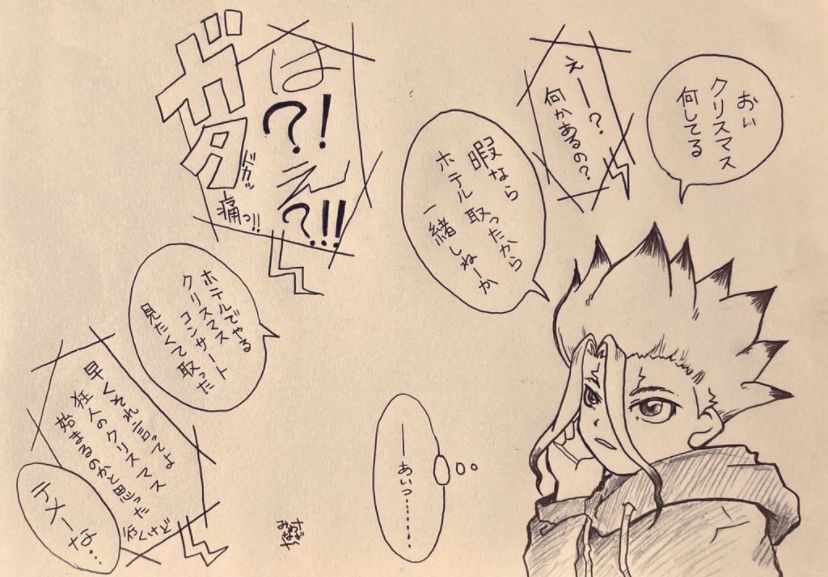 おい
クリスマス
何してる
えー?
何かあるの?
暇なら
ホテル取ったから
一緒しねーか
は?!
え?!!
ガタタ
ドカッ
痛っ!!
ホテルでやる
クリスマス
コンサート
見たくて取った
早くそれ言ってよ
狂人のクリスマス
始まるのかと思った
行くけど
テメーな…
―あいつ………